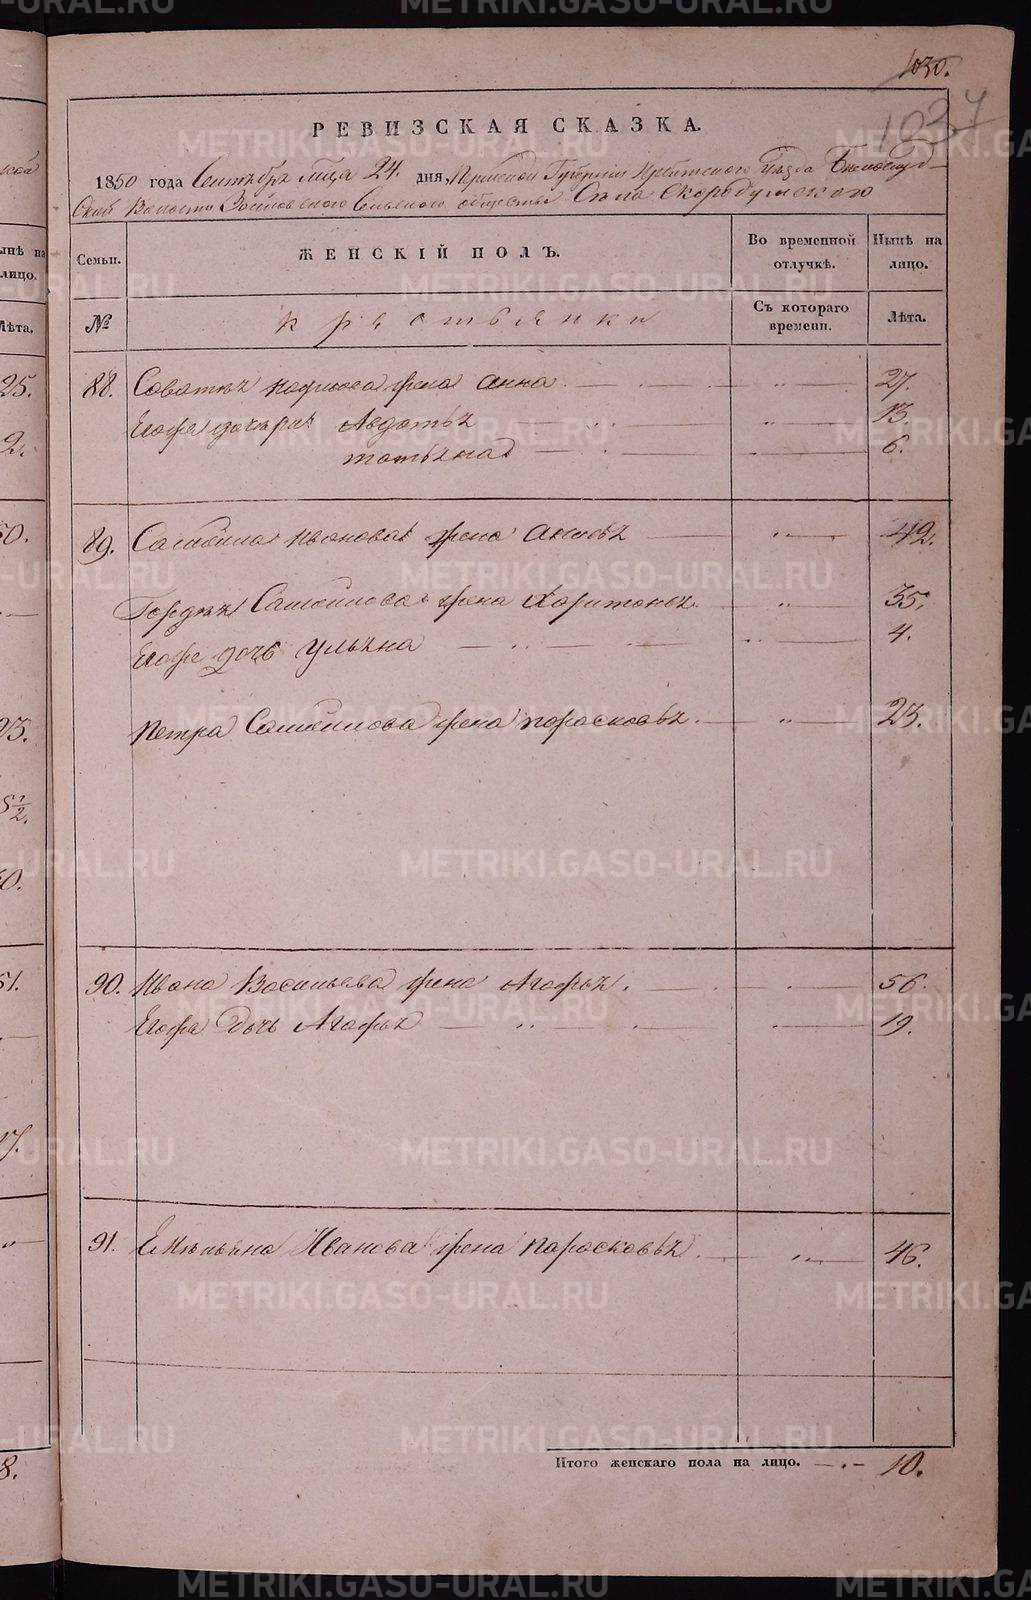 METRIKI.GASO-URAL.RU
1030.
1037
РЕВИЗСКАЯ СКАЗКА.
1850 года Сентября мца 24. дня, Пермской Губернiи Ирбитского Уѣзда Бѣлослуд-
ской Волости Сельского общества Села Скородумского
Семьи.
ЖЕНСКІЙ ПОЛЪ.
Во временной отлучкѣ.
Нынѣ на лицо.
№
крестьянки
Съ котораго времени.
Лѣта.
88. жена Анна 27.
Егоже дочери Авдотья 13.
татьяна 6.
89. Самойла Иванова жена 42.
Самойлова жена Харитонья 35.
Егоже дочь Ульяна 4.
Петра Самойлова жена порасковья 23.
90. Ивана Васильева жена Агафья 56.
Егоже Дочь Агафья 19.
91. Емельяна Иванова жена парасковья 46.
Итого женскаго пола на лицо. 10.